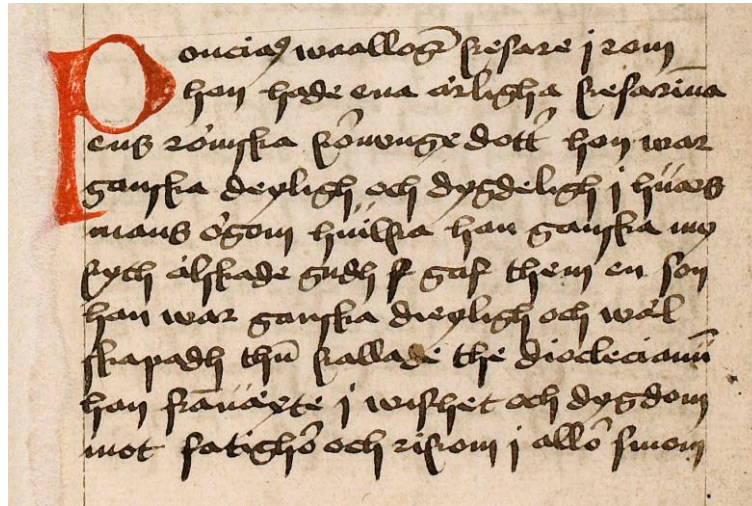 Poncia⁹ waallog̅ kesare j rom
han hade ena ärligha kesarin̅a
ens römska kōnunge dott̅ hon war
ganska deyligh och dygdeligh j huars
mans ögom huilka han ganska my
kyth älskade gudh f gaf them en son
han war ganska dieyligh och wäl
skapadh thn̅ kallade the dioclecianū
han fra̅uäxte j wishet och dygdom
mot fatighō och rikom j allō sinom